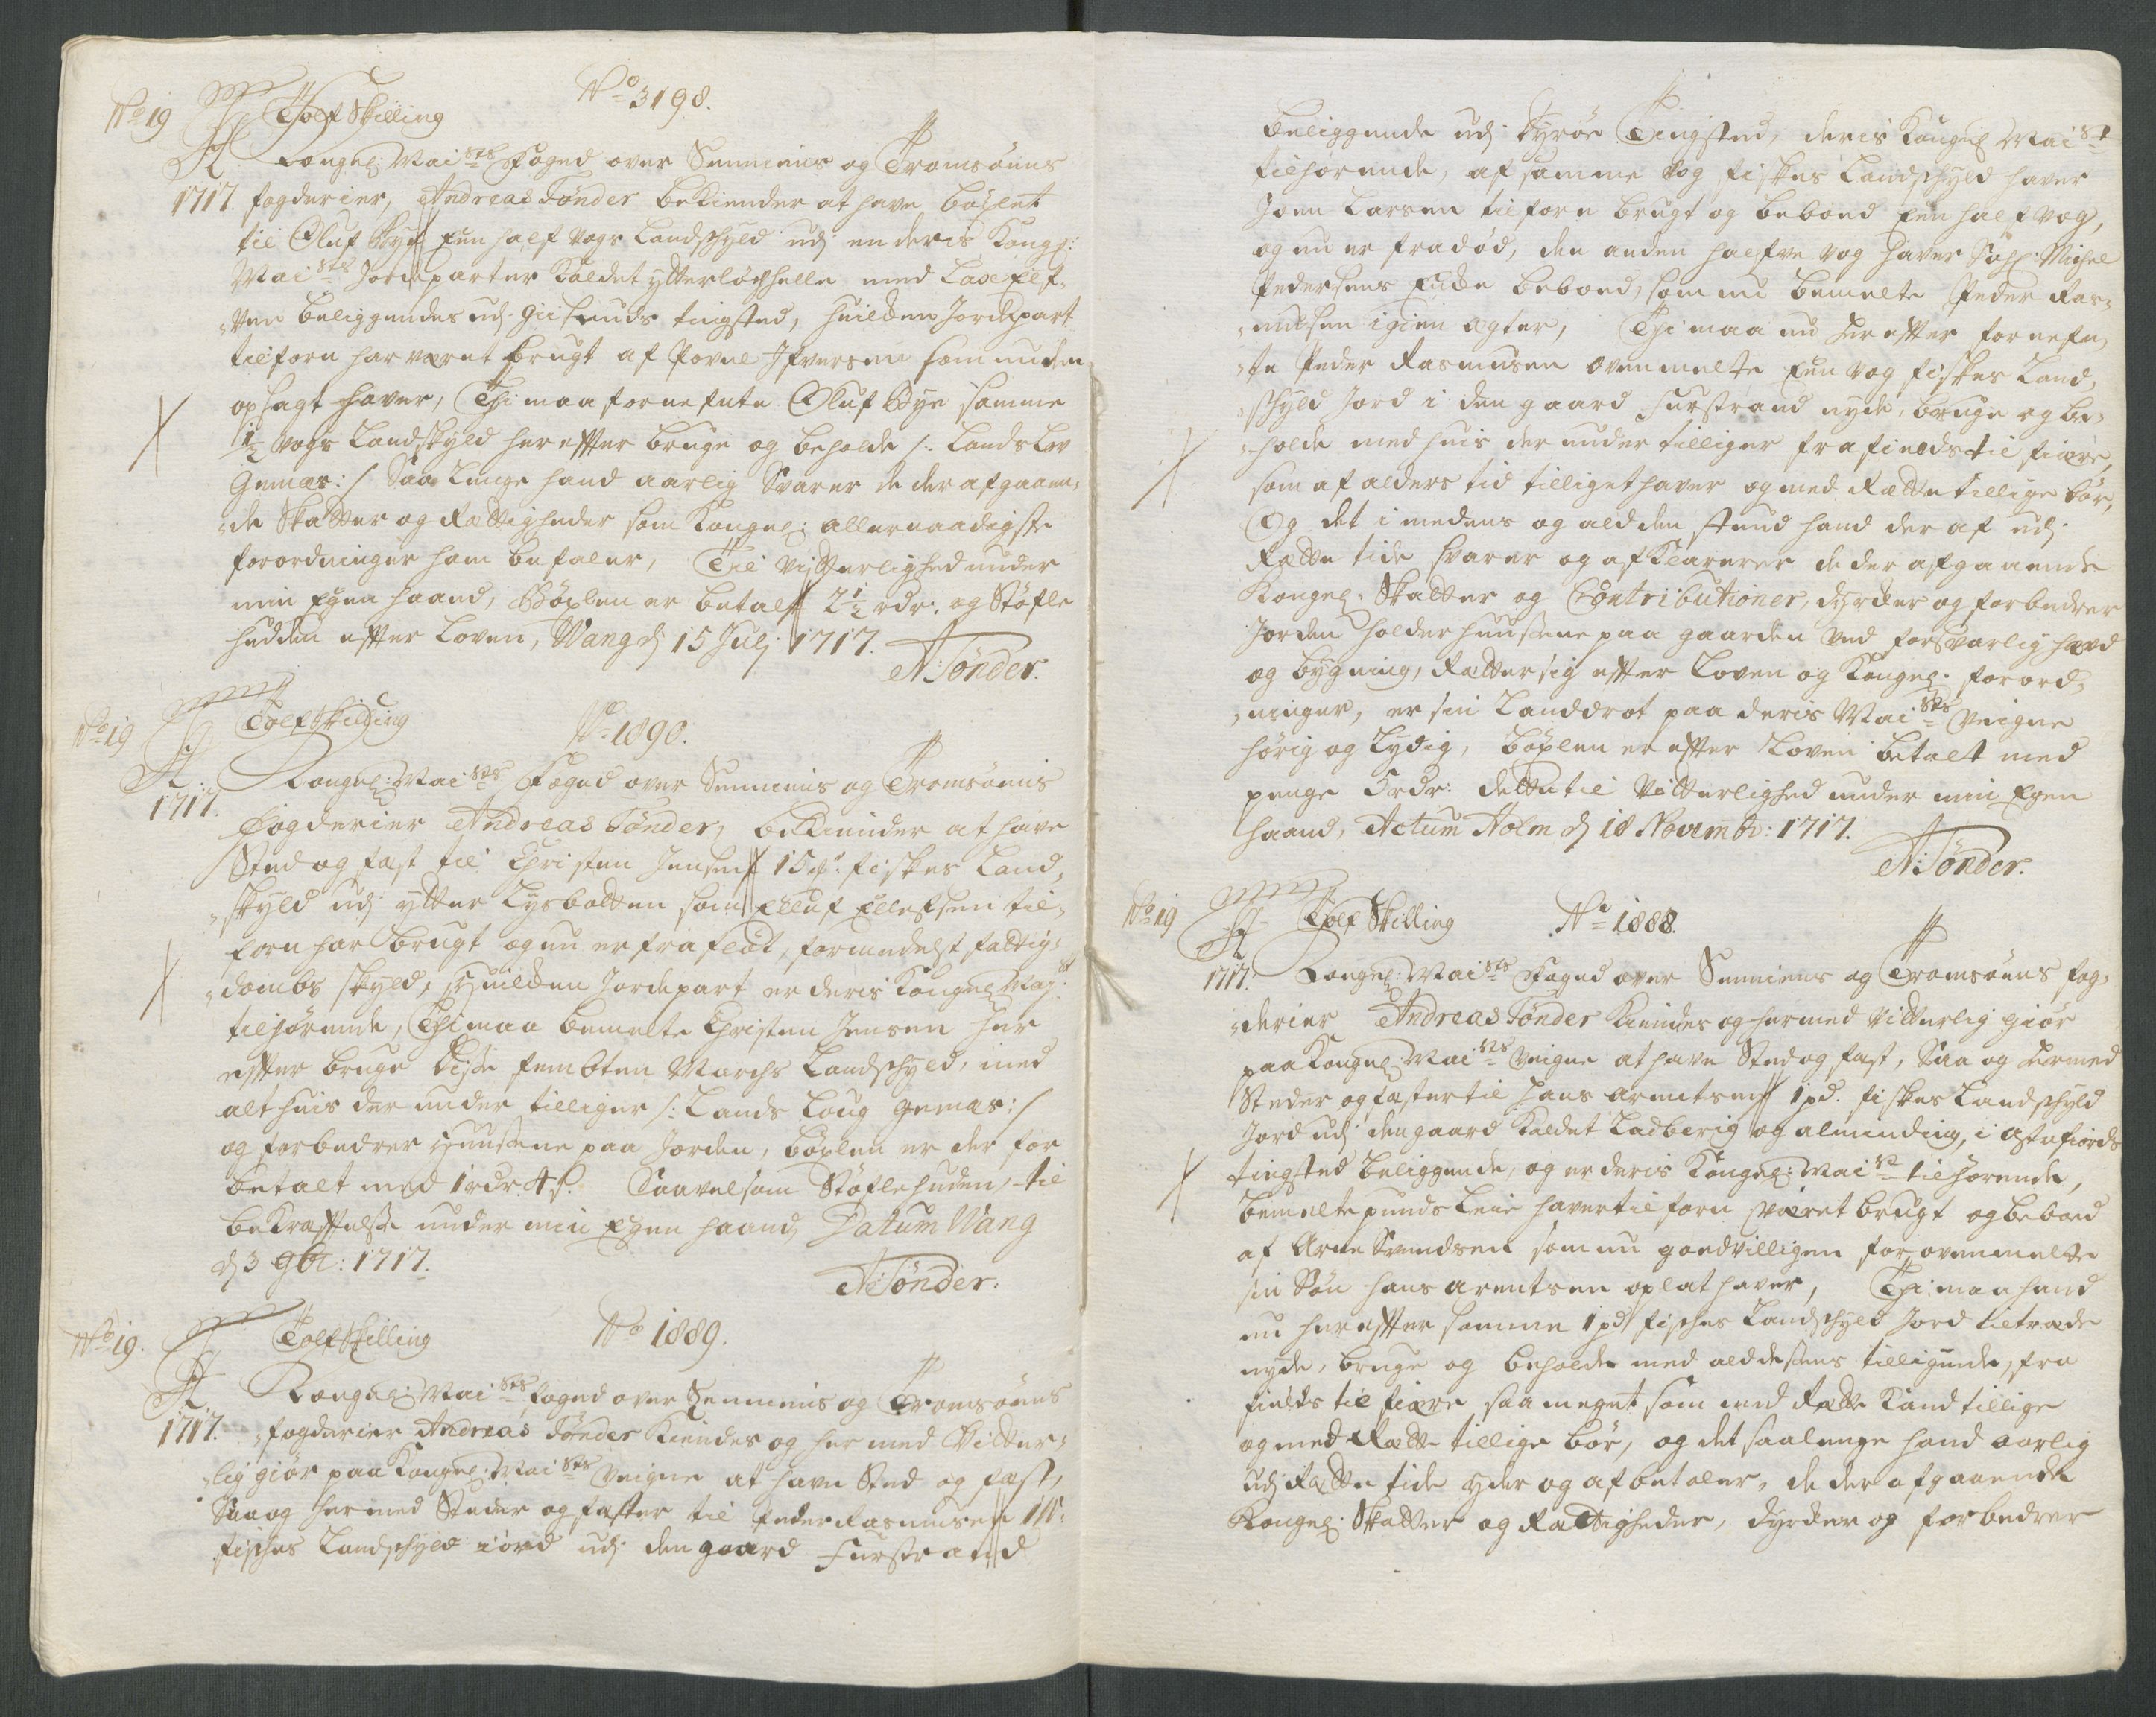 No 19 Tolf Skilling No 3198.
Kongel: Mai sts Foged over Senniens og Tromsøens
1717. fogderier, Andreas Tønder bekiender at have böxlet
til Oluf Bye Een half vogs Landschyld udj en deris Kongl:
Mai sts Jordeparter kaldet ytterlöchhelle med Laxe Elf-
-ven beliggendes udj Giisunds tingsted, huilcken Jordepart
tilforn har været brugt af Povel Ifversen som nu den
opsagt haver, Thi maa fornefnte Oluf Bye samme
1/2 vogs Landskyld hereffter bruge og beholde /: Lands Lov
Gemæs :/ Saa Lenge hand aarlig Svarer de der afgaaen-
-de Skatter og Rettigheder som Kongel: allernaadigste
forordninger ham befaler, Til vitterlighed under
min Egen haand, Böxlen er betalt 2 1/2 rdr: og Støfle
hudden effter Loven, Wang dj 15 Julj 1717.
A: Tønder.
No 19 Tolf Skilling No 1890.
Kongel: Mai sts Foged over Senniens og Tromsøens
1717.
fogderier Andreas Tønder, bekiender at have
Sted og fæst til Christen Jensen 15 mk: fiskes Land-
-skyld udj ytter Lysbotten som Elluf Ellefsen til-
forn har brugt og nu er fra fløt, formedelst fattig-
-dombs skyld, Huilcken Jordepart er deris Kongel Maj st
tilhörende, Thi maa bemelte Christen Jensen her
effter bruge disse fembten Marchs Landschyld, med
alt huis der under tilliger /: Lands Loug gemæs :/
og forbedrer Huussene paa Jorden, böxlen er der for
betalt med 1 rdr. 4 s. Saavelsom Støflehuden, til
bekræfftelse under min Egen haand, Datum Wang
dj 3 9br: 1717.
A: Tønder.
No 19. Tolf Skilling No 1889.
Kongel: Mai sts foged over Senniens og Tromsøens
1717. fogderier Andreas Tønder kiendes og her med Vitter-
-lig giör paa Kongel: Mai sts Veigne at have Sted og fæst,
Saa og hermed Steder og fæster til Peder Rasmusen 1 W:
fisches Landschyld iord udj den gaard Furstrand
beliggende udj Kyrøe Tingsted, deris Kongel Mai st
tilhörende, af samme vog fiskes Landschyld haver
Joen Larsen tilforn brugt og beboed Een half vog,
og nu er fradöd, den anden halfve vog haver Sahl: Michel
Pedersens Encke beboed, som nu bemelte Peder Ras-
-musen igien ægter, Thi maa nu her effter fornefn-
-te Peder Rasmusen ovenmelte Een vog fiskes Land-
-schyld Jord i den gaard Furstrand nyde, bruge og be-
-holde med huis der under tilliger fra fields til fiære,
som af alders tid tilliget haver og med Rætte tillige bör,
Og det imedens og ald den stund hand der af udj
Rætte tide svarer og afklarerer de der afgaaende
Kongel: Skatter og Contributioner, dyrcker og forbedrer
Jorden holder huussene paa gaarden ved forsvarlig hævd
og bygning, Retter sig effter Loven og Kongel: forord-
-ninger, er sin Landdrot paa deris Mai sts Veigne
hörig og Lydig, böxlen er effter Loven betalt med
penge 5 rdr: dette til Vitterlighed under min Egen
haand, Actum Holm dj 18 Novembr: 1717.
A: Tønder.
No 19 Tolf Skilling No 1888.
1717. Kongel: Mai sts Foged over Senniens og Tromsøens fog-
-derier Andreas Tønder kiendes og hermed vitterlig giör
paa Kongel: Mai sts Veigne at have Sted og fæst, Saa og hermed
Steder og fæster til Hans Arentsen 1 pd. fiskes Landschyld
Jord udj den gaard kaldet Ladberig og alminding, i Astafiords
tingsted beliggende, og er deris Kongel: Mai st tilhörende,
bemelte punds leie haver tilforn været brugt og beboed
af Arne Svendsen som nu goedvilligen for ovenmelte
sin Sön Hans Arentsen oplat haver, Thi maa hand
nu her effter samme 1 pd fisches Landschyld Jord tiltræde
nyde, bruge og beholde med ald dessens tilligende, fra
fields til fiære saa meget som med Rætte kand tillige
og med Rætte tillige bör, og det saalenge hand aarlig
udj Rætte tide yder og afbetaler, de der afgaaende
Kongel: Skatter og Rættigheder, dyrcker og forbedrer